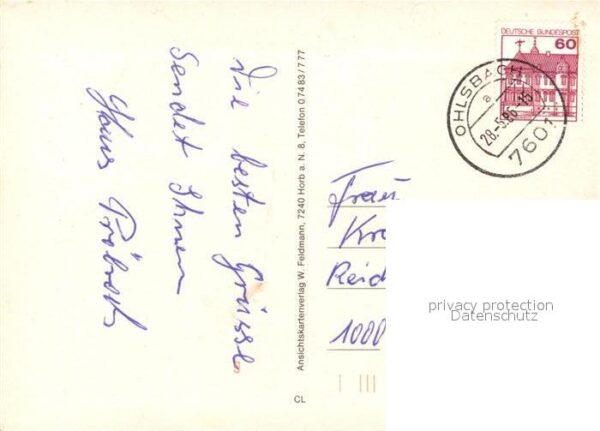 Die besten Grüsse
sendet Ihnen
Hans
Ansichtskartenverlag W. Feldmann, 7240 Horb a. N. 8, Telefon 0 74 83 / 7 77
CL
DEUTSCHE BUNDESPOST
60
OHLSBACH
a
28.-5.86.-15
7601
Frau
Kra
Reich
1000
privacy protection
Datenschutz